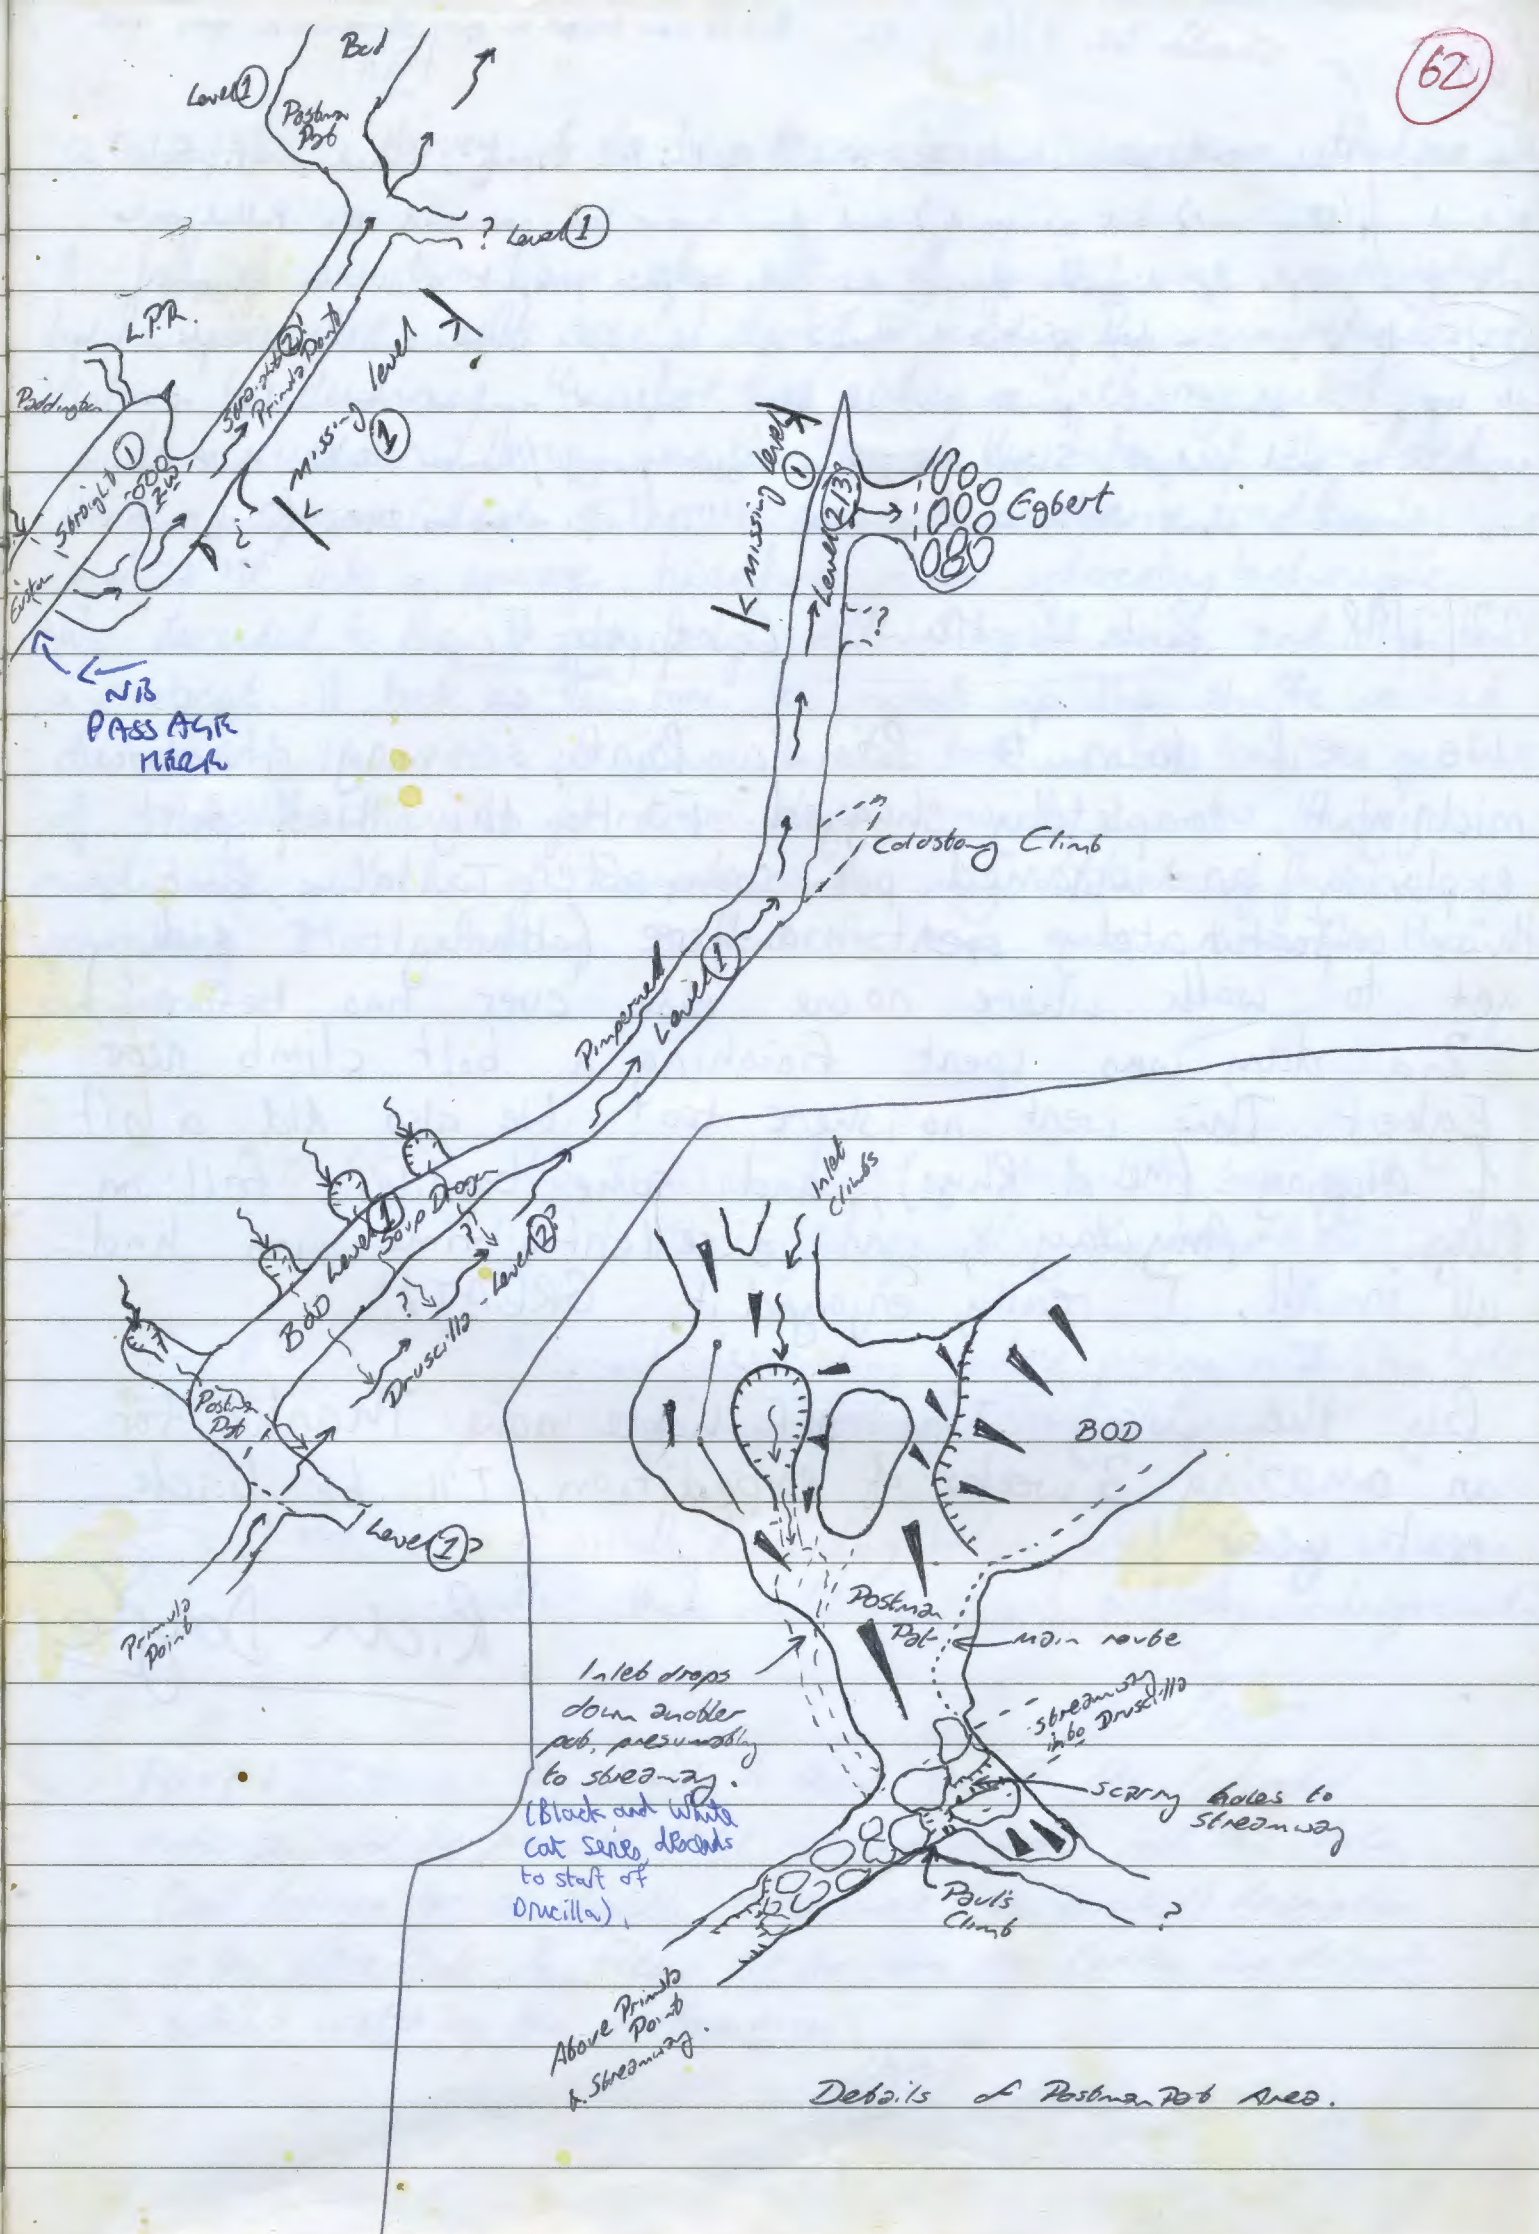 62
Bod
Level ①
Postman
Pat
? Level ①
L.P.R.
Paddington
Straight ②!
Primula Point
missing level
①
Straight ①
?
Euston
NB
PASSAGE
HERE
missing level
①
Level 2/3?
Egbert
?
Colostomy Climb
Pimpernell
Level ①
Level ①
Soup Dragon
BOD
?
?
Druscilla - Level ②?
?
Postman
Pat
Level ①?
Primula
Point
Inlet
Climbs
BOD
Postman
Pat
main route
Inlet drops
down another
pot, presumably
to streamway.
(Black and White
Cat Series, descends
to start of
Drucilla).
streamway
into Druscilla
scarry holes to
streamway
Paul's
Climb
?
Above Primula
Point
& Streamway.
Details of Postman Pat Area.